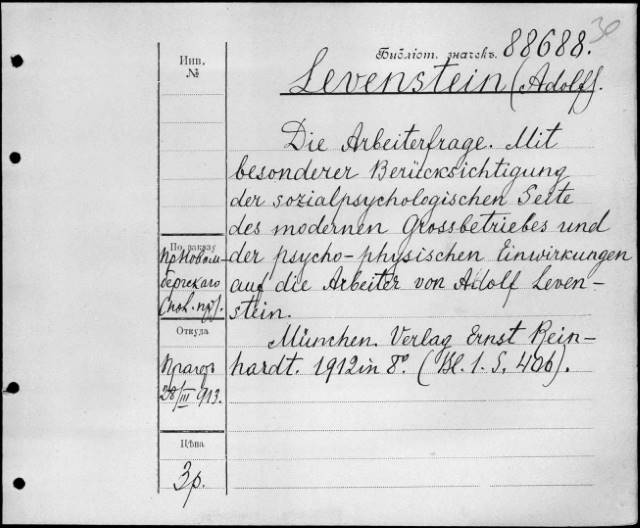 30
Библіот. значекъ. 88688.
Инв.
№
Levenstein (Adolf).
Die Arbeiterfrage. Mit
besonderer Berücksichtigung
der sozialpsychologischen Seite
des modernen Grossbetriebes und
der psycho-physischen Einwirkungen
auf die Arbeiter von Adolf Leven-
stein.
München. Verlag Ernst Rein-
hardt. 1912 in 8º. (Bl. 1. S. 406).
По заказу
пр Новом-
бергскаго
Откуда
Прагеръ
28/III 913.
Цѣна
3р.